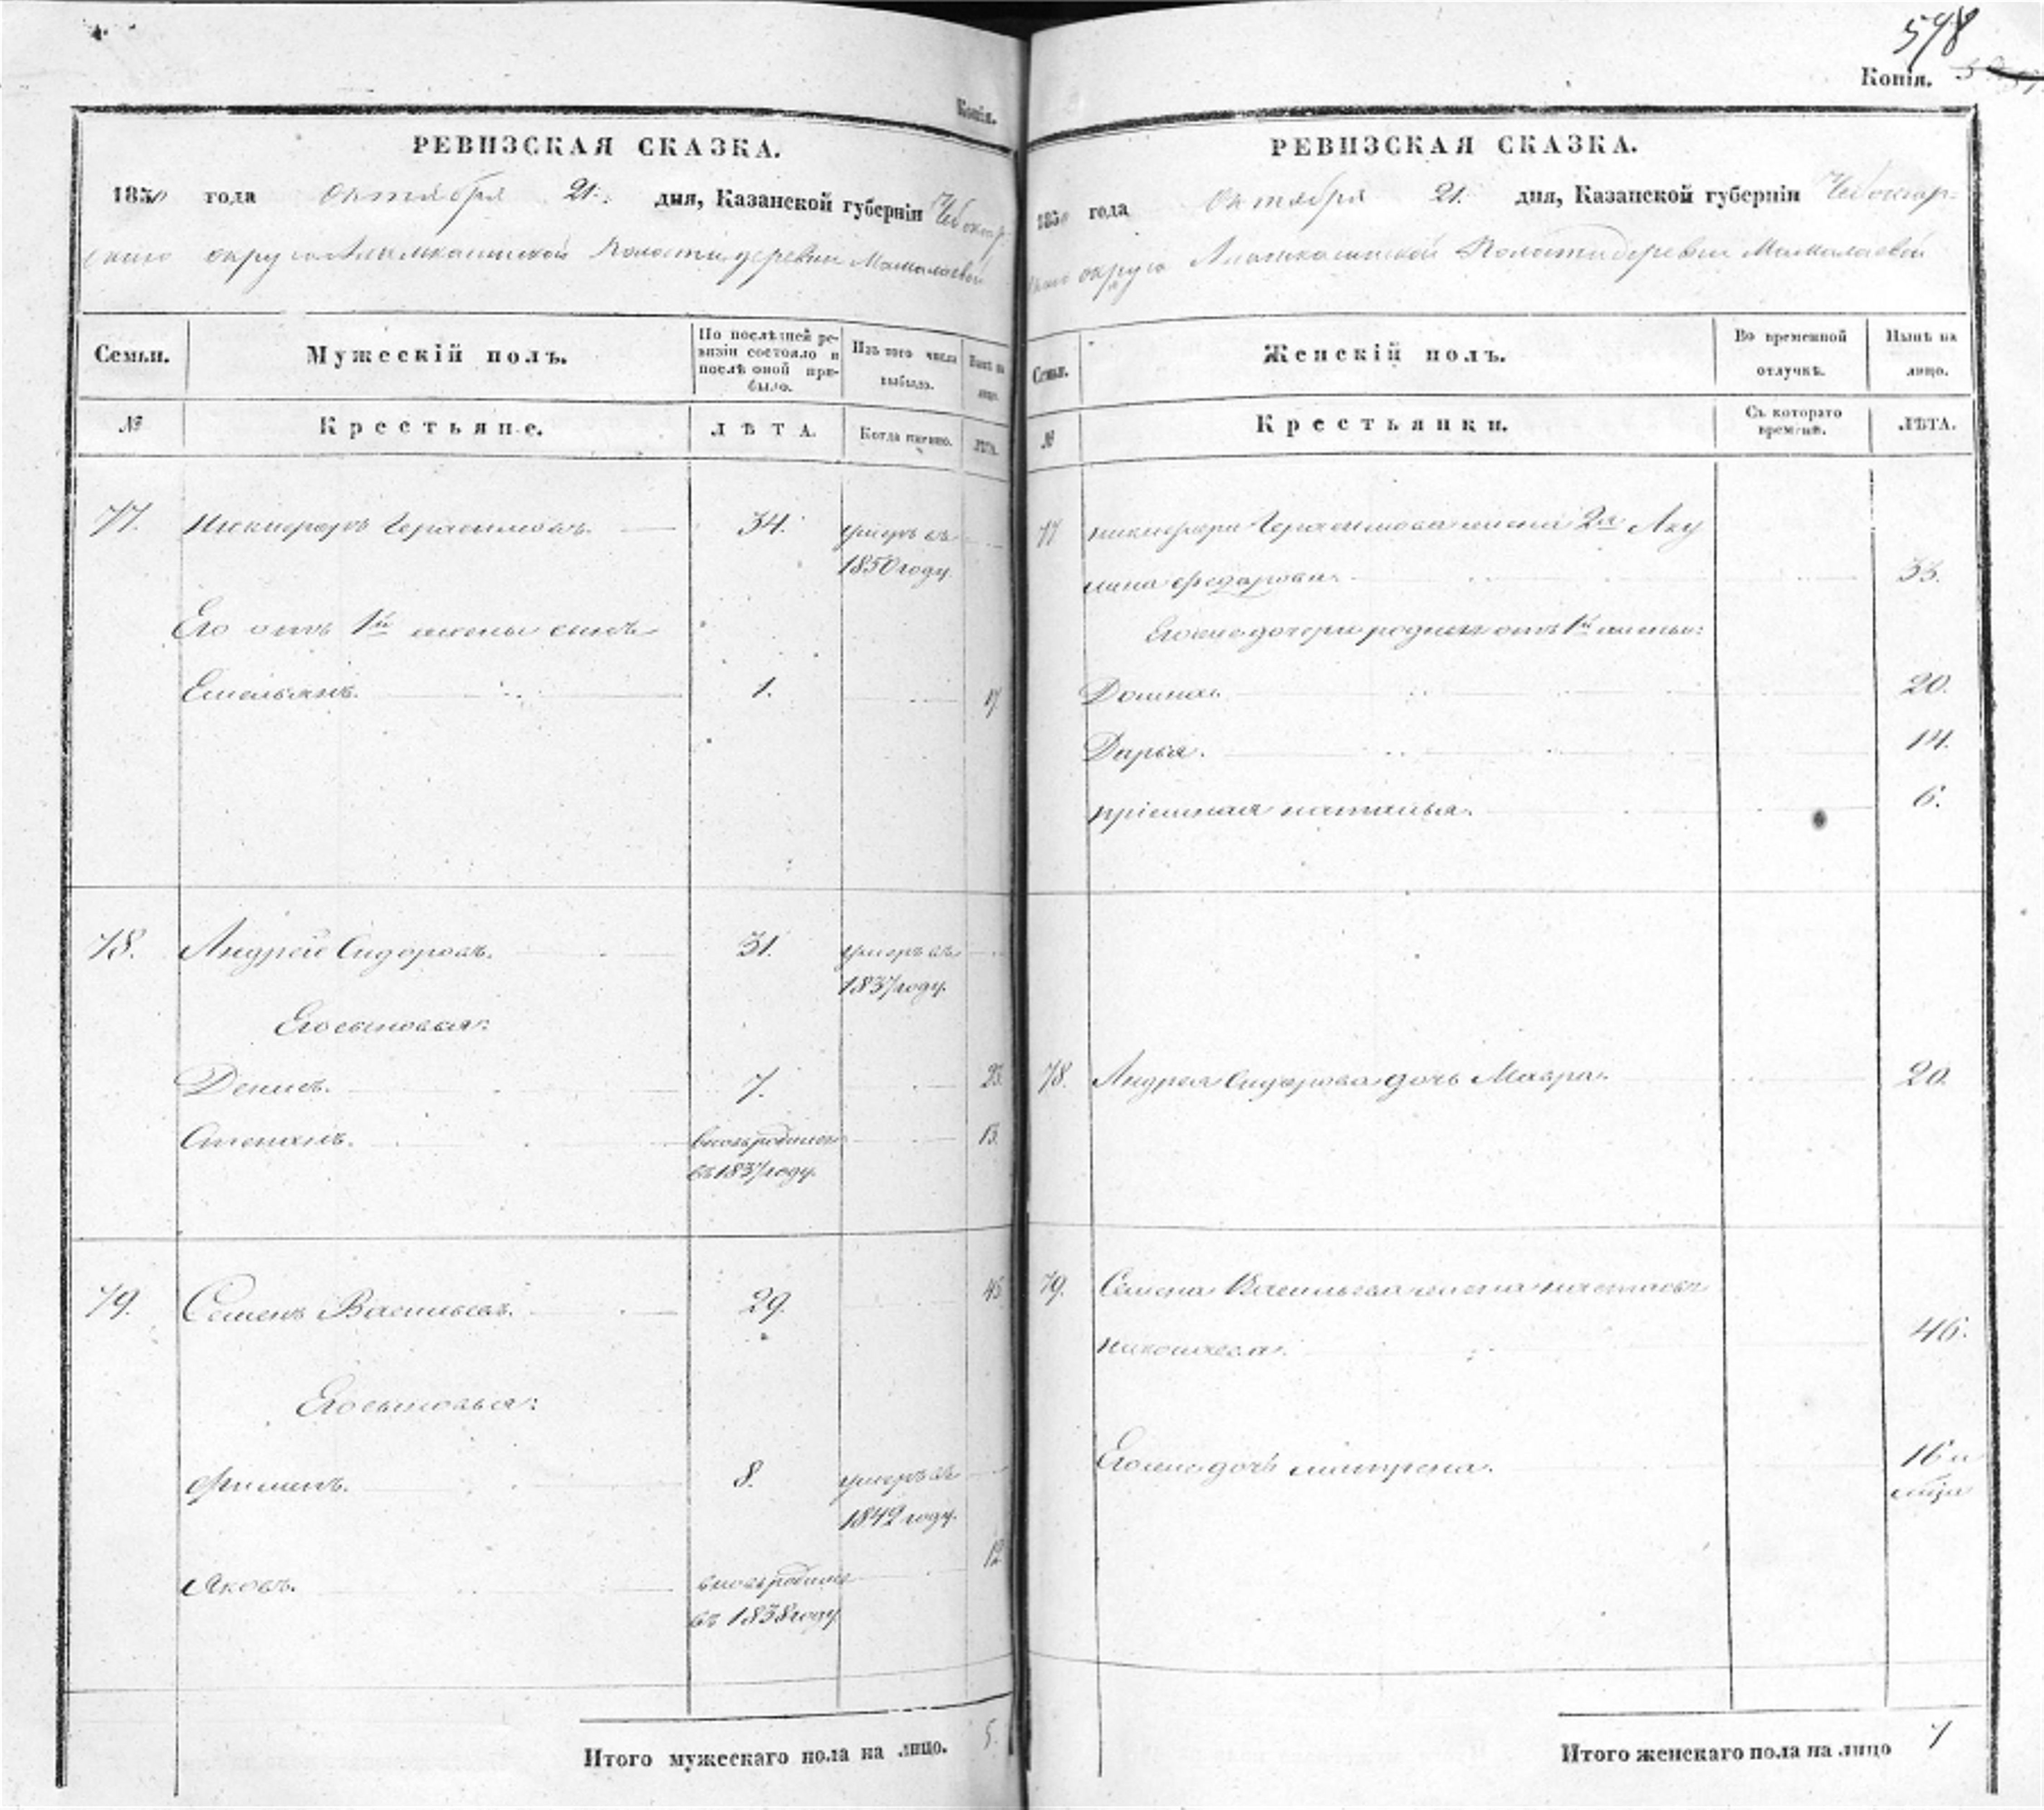 Копія.
РЕВИЗСКАЯ СКАЗКА.
1850 года Октября 21. дня, Казанской губерніи Чебоксар-
скаго округа Волости деревни Мамалаевой
Семьи. Мужескій полъ. По послѣдней ре-
визіи состояло и
послѣ оной при-
было. Изъ того числа
выбыло. Нынѣ на
лицо.
№ Крестьяне. ЛѢТА. Когда именно. ЛѢТА.
77. Никифоръ Герасимовъ. 34. умеръ въ
1850 году.
Его отъ 1й жены сынъ
Емельянъ. 1. 17
78. Андрей Сидоровъ. 31. умеръ въ
1837 году.
Его сыновья:
Денисъ. 7. 23.
Степанъ. вновь рожденъ 13.
въ 1837 году.
79. Семенъ Васильевъ. 29. 45
Его сыновья:
Филипъ. 8. умеръ въ
1842 году.
Яковъ. вновь рожденъ 12
въ 1838 году
Итого мужескаго пола на лицо. 5.
598
Копія.
РЕВИЗСКАЯ СКАЗКА.
1850 года Октября 21. дня, Казанской губерніи Чебоксар-
скаго округа Волости деревни Мамалаевой
Семьи. Женскій полъ. Во временной
отлучкѣ. Нынѣ на
лицо.
№ Крестьянки. Съ котораго
времени. ЛѢТА.
77 Никифора Герасимова жена 2я Аку
лина Федорова. 33.
Его же дочери родныя отъ 1й жены:
Домна. 20.
Дарья. 14.
пріемная наталья. 6.
78. Андрея Сидорова дочь Мавра. 20.
79. Семена Васильева жена настасья
николаева. 46.
Его же дочь матрена. 16 и
Итого женскаго пола на лицо 7